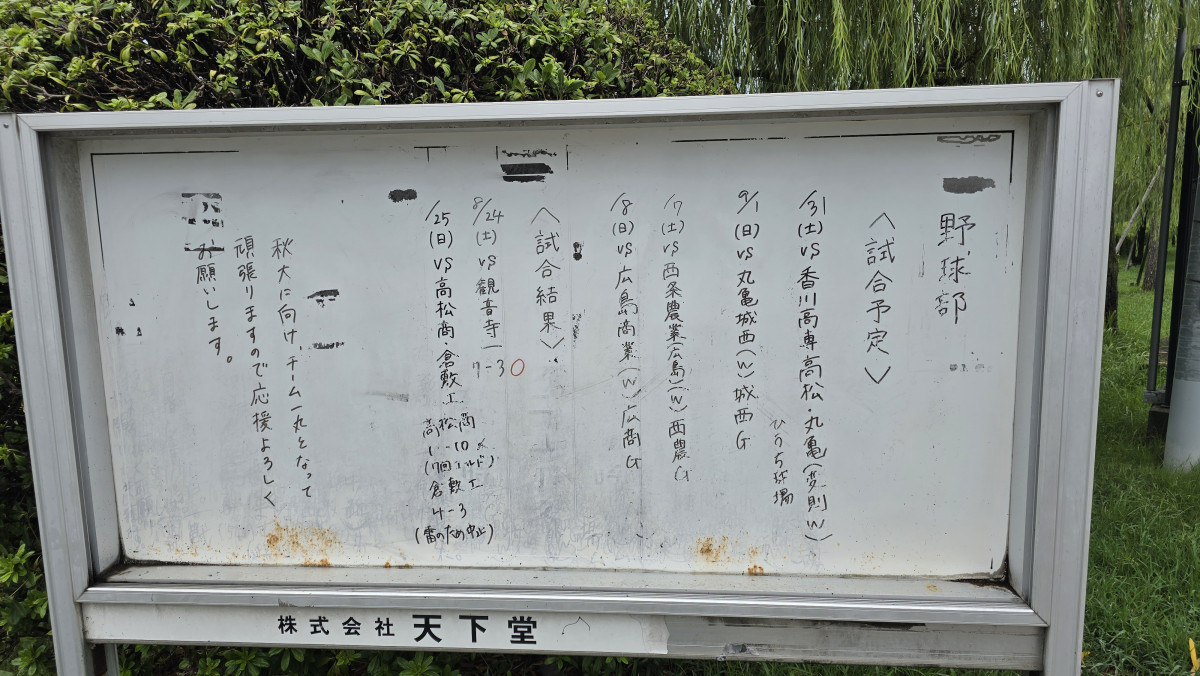 野球部
〈試合予定〉
/31(土) VS 香川高専高松・丸亀(変則W)
ひうち球場
9/1(日) VS 丸亀城西(W) 城西G
/7(土) VS 西条農業(広島)(W) 西農G
/8(日) VS 広島商業(W) 広商G
〈試合結果〉
8/24(土) VS 観音寺一
7-3○
/25(日) VS 高松商・倉敷工
高松商
1-10
(7回コールド)
倉敷工
4-3
(雷のため中止)
秋大に向け、チーム一丸となって
頑張りますので応援よろしく
お願いします。
株式会社 天下堂